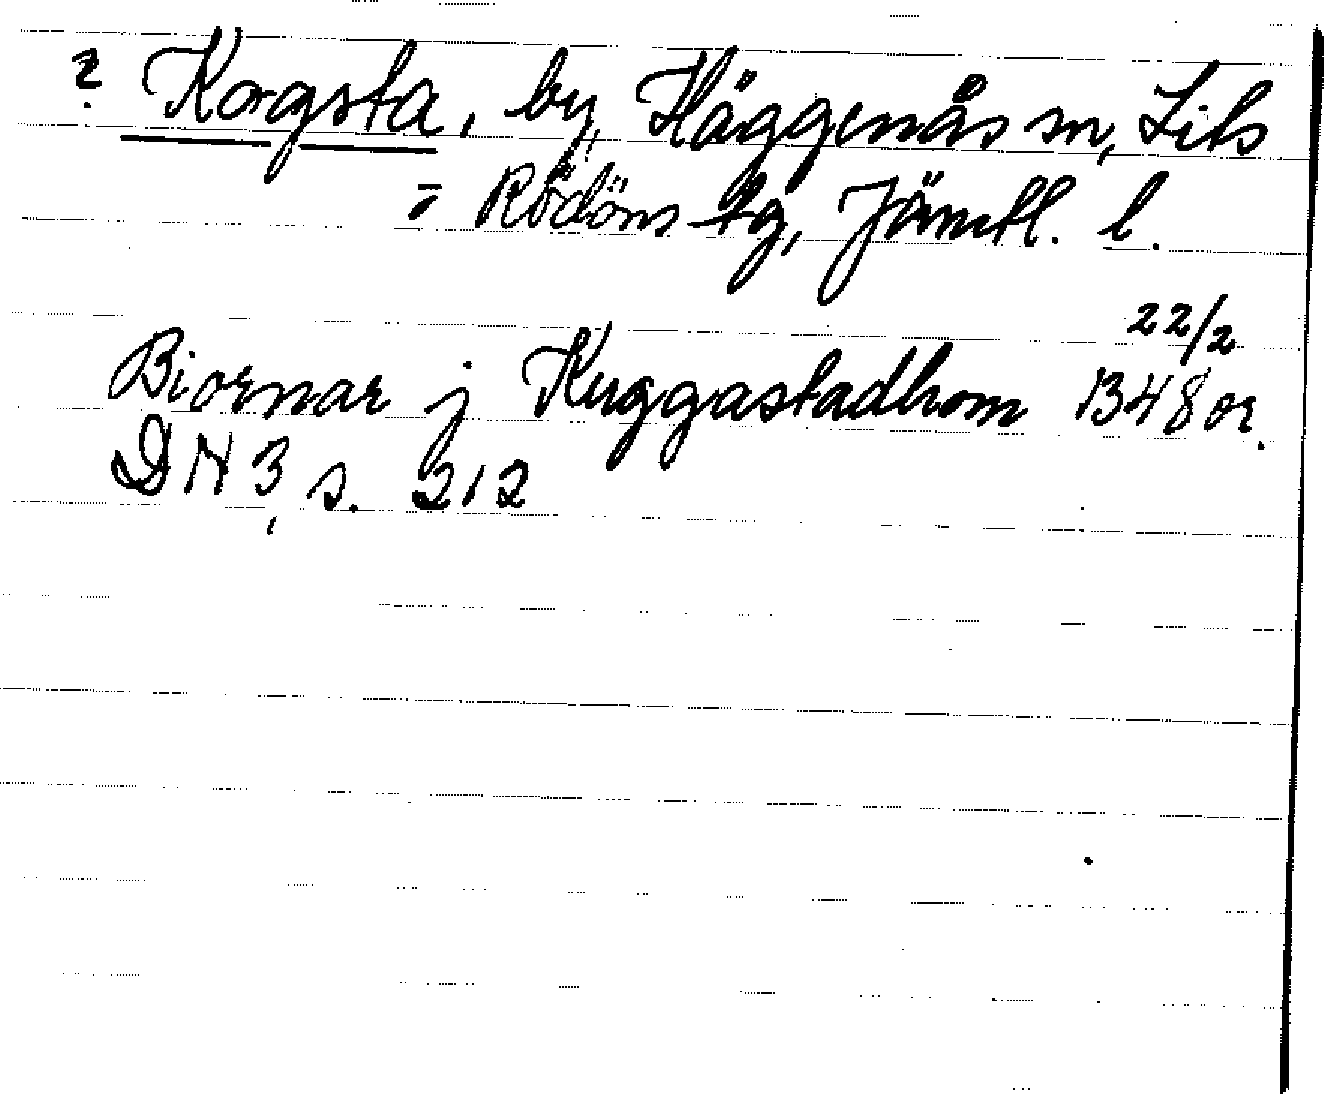 ? Korgsta, by, Häggenås sn, Lits
= Rödöns tg, Jämtl. l.
22/2
Biornar j Kuggastadhom 1348 or.
DN 3, s. 212